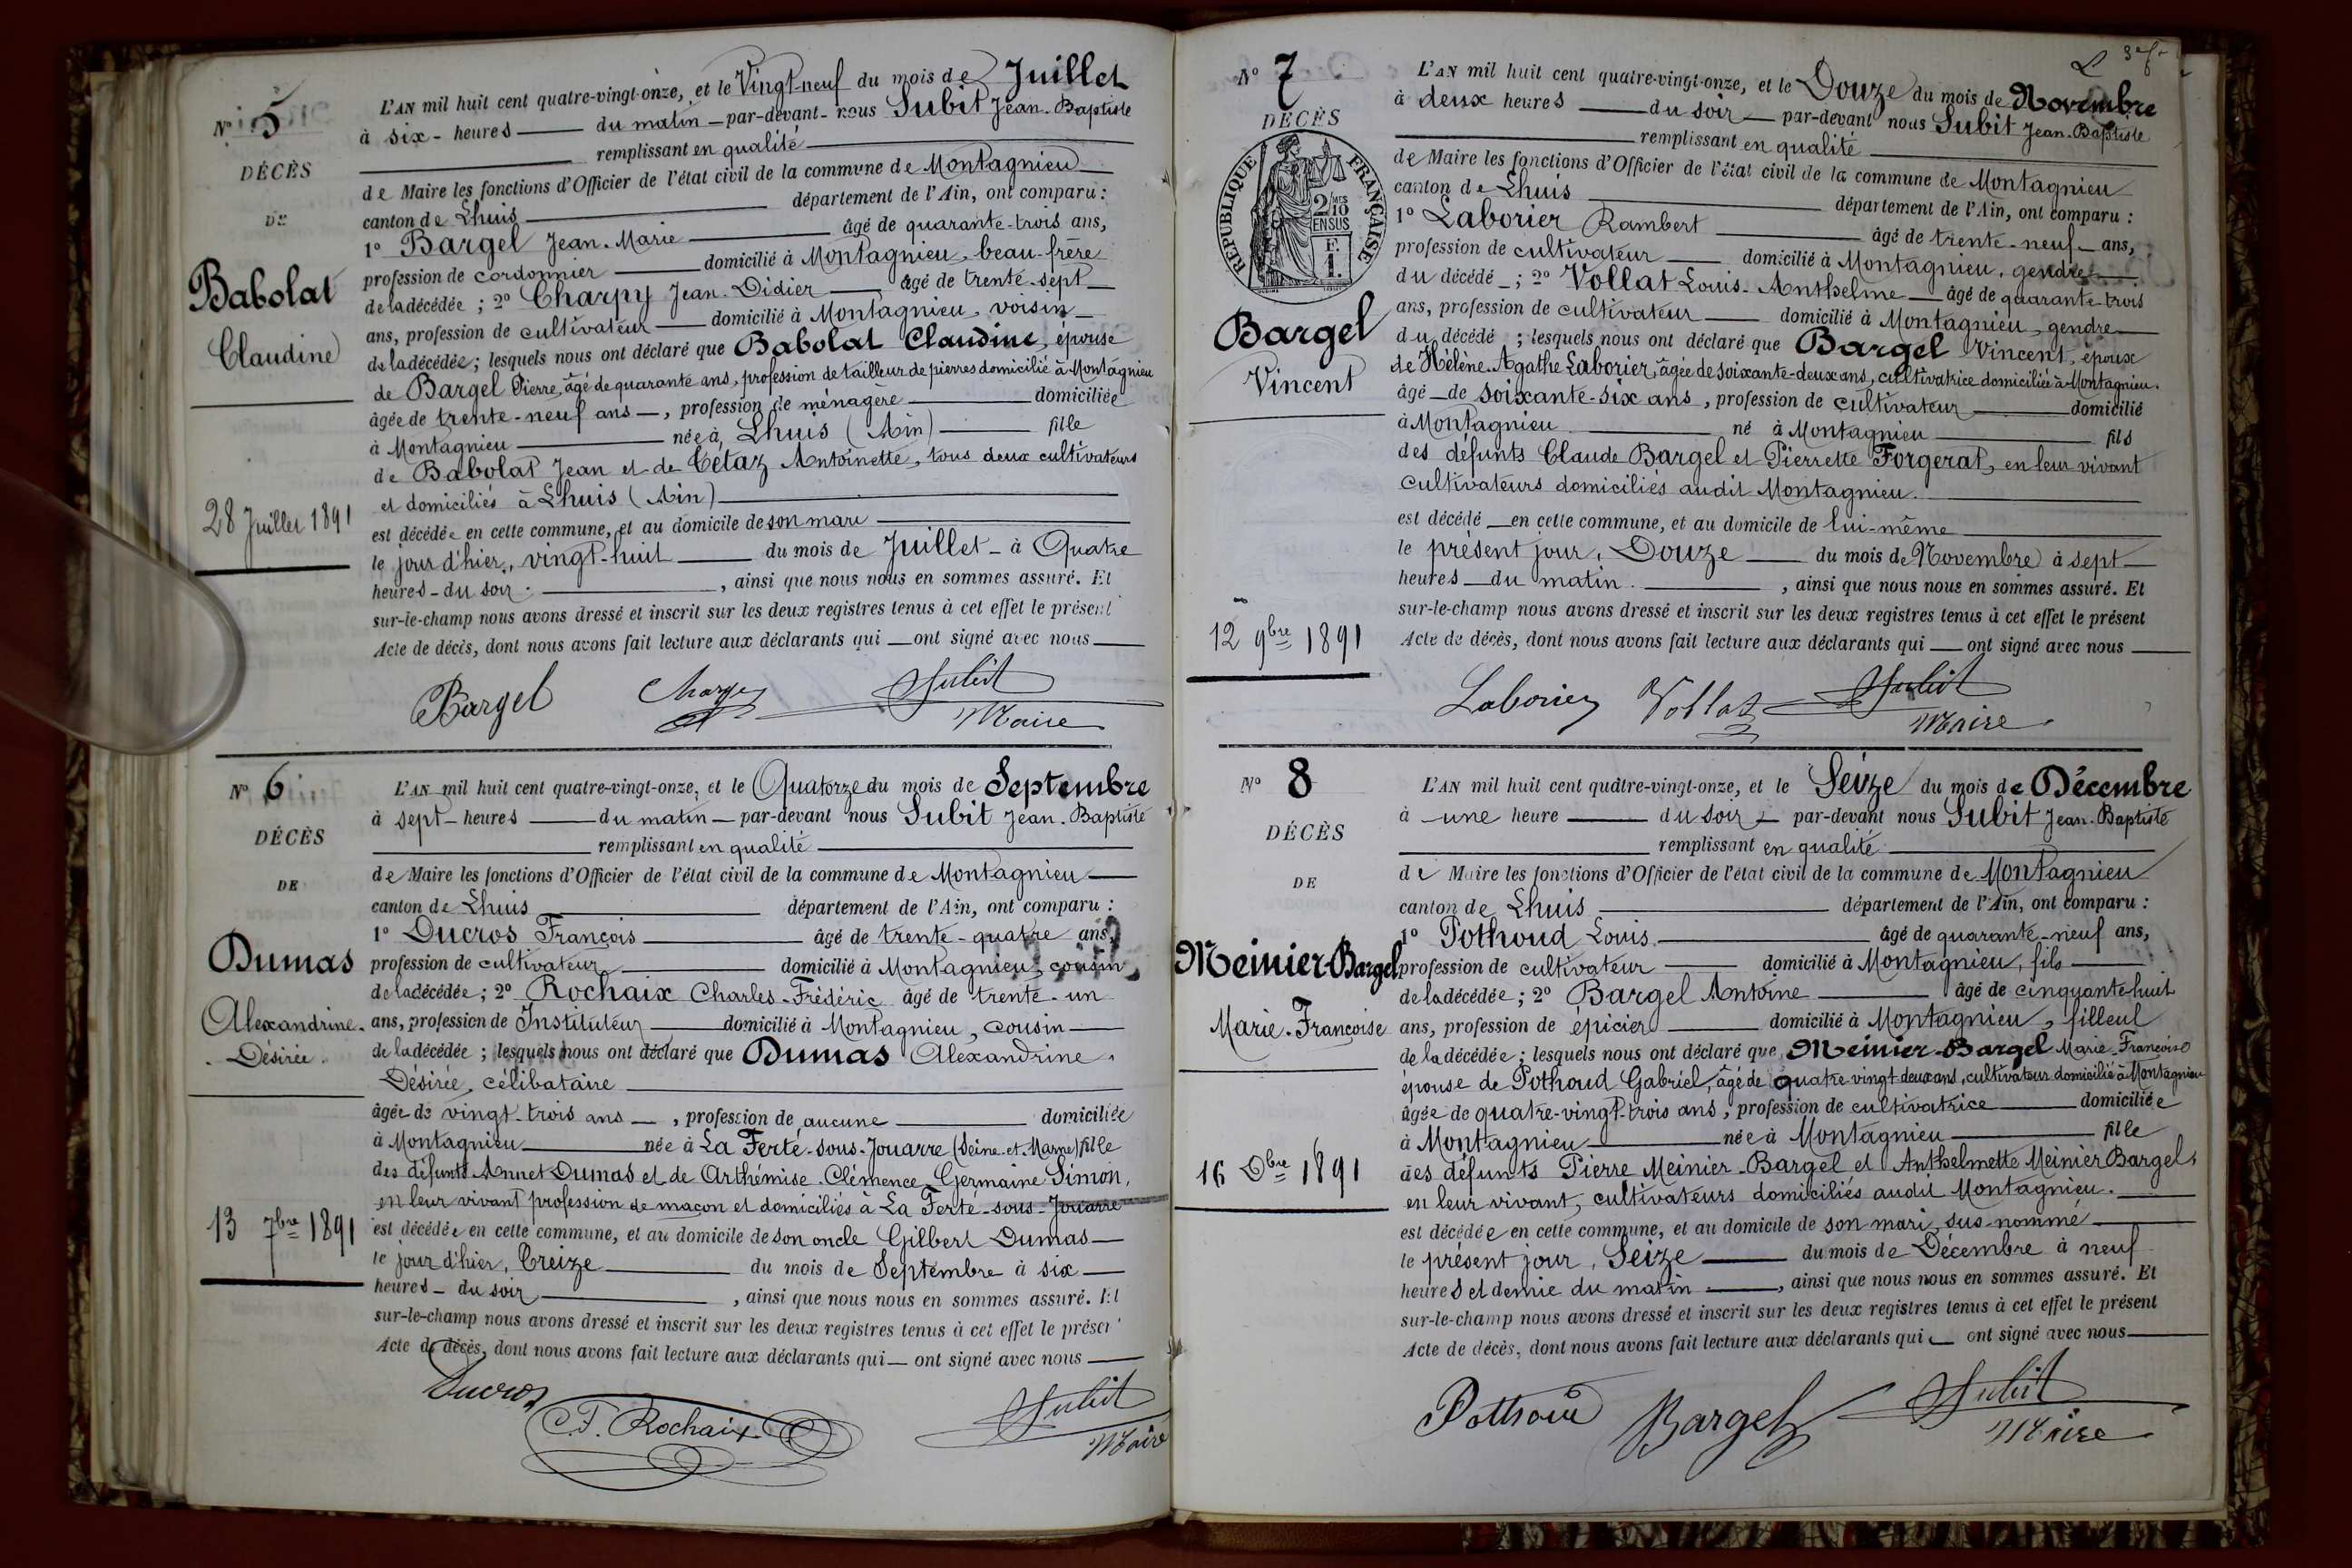 N° 5
DÉCÈS
DE
Babolat
Claudine
28 Juillet 1891
L'AN mil huit cent quatre-vingt-onze, et le Vingt-neuf du mois de Juillet
à six - heures du matin - par-devant - nous Subit Jean-Baptiste
remplissant en qualité
de Maire les fonctions d'Officier de l'état civil de la commune de Montagnieu
canton de Lhuis département de l'Ain, ont comparu :
1° Bargel Jean-Marie âgé de quarante-trois ans,
profession de cordonnier domicilié à Montagnieu, beau-frère
de la décédée ; 2° Charpy Jean-Didier âgé de trente-sept
ans, profession de cultivateur domicilié à Montagnieu, voisin
de la décédée ; lesquels nous ont déclaré que Babolat Claudine, épouse
de Bargel Pierre, âgé de quarante ans, profession de tailleur de pierres domicilié à Montagnieu
âgée de trente-neuf ans, profession de ménagère domiciliée
à Montagnieu née à Lhuis (Ain) fille
de Babolat Jean et de Cétaz Antoinette, tous deux cultivateurs
et domiciliés à Lhuis (Ain)
est décédée en cette commune, et au domicile de son mari
le jour d'hier, vingt-huit du mois de Juillet - à Quatre
heures - du soir, ainsi que nous nous en sommes assuré. Et
sur-le-champ nous avons dressé et inscrit sur les deux registres tenus à cet effet le présent
Acte de décès, dont nous avons fait lecture aux déclarants qui ont signé avec nous
Bargel Charpy Subit
Maire
N° 6
DÉCÈS
DE
Dumas
Alexandrine-
Désirée.
13 7bre 1891
L'AN mil huit cent quatre-vingt-onze, et le Quatorze du mois de Septembre
à sept - heures du matin - par-devant nous Subit Jean-Baptiste
remplissant en qualité
de Maire les fonctions d'Officier de l'état civil de la commune de Montagnieu
canton de Lhuis département de l'Ain, ont comparu :
1° Ducros François âgé de trente-quatre ans,
profession de cultivateur domicilié à Montagnieu, cousin
de la décédée ; 2° Rochaix Charles-Frédéric âgé de trente-un
ans, profession de Instituteur domicilié à Montagnieu, cousin
de la décédée ; lesquels nous ont déclaré que Dumas Alexandrine-
Désirée, célibataire
âgée de vingt-trois ans, profession de aucune domiciliée
à Montagnieu née à La Ferté-sous-Jouarre (Seine-et-Marne) fille
des défunts Annet Dumas et de Arthémise-Clémence Germaine Simon,
en leur vivant profession de maçon et domiciliés à La Ferté-sous-Jouarre
est décédée en cette commune, et au domicile de son oncle Gilbert Dumas
le jour d'hier, Treize du mois de Septembre à six
heures - du soir, ainsi que nous nous en sommes assuré. Et
sur-le-champ nous avons dressé et inscrit sur les deux registres tenus à cet effet le présen
Acte de décès, dont nous avons fait lecture aux déclarants qui ont signé avec nous
Ducros
C.F. Rochaix Subit
Maire
N° 7
DÉCÈS
RÉPUBLIQUE FRANÇAISE
2/10 MES
EN SUS
F.
1.
Bargel
Vincent
12 9bre 1891
L'AN mil huit cent quatre-vingt-onze, et le Douze du mois de Novembre
à deux heures du soir - par-devant nous Subit Jean-Baptiste
remplissant en qualité
de Maire les fonctions d'Officier de l'état civil de la commune de Montagnieu
canton de Lhuis département de l'Ain, ont comparu :
1° Laborier Rambert âgé de trente-neuf - ans,
profession de cultivateur domicilié à Montagnieu, gendre
du décédé ; 2° Vollat Louis-Anthelme âgé de quarante-trois
ans, profession de cultivateur domicilié à Montagnieu, gendre
du décédé ; lesquels nous ont déclaré que Bargel Vincent, époux
de Hélène-Agathe Laborier, âgée de soixante-deux ans, cultivatrice domiciliée à Montagnieu.
âgé de soixante-six ans, profession de cultivateur domicilié
à Montagnieu né à Montagnieu fils
des défunts Claude Bargel et Pierrette Forgerat, en leur vivant
cultivateurs domiciliés audit Montagnieu.
est décédé en cette commune, et au domicile de lui-même
le présent jour, Douze du mois de Novembre à sept
heures du matin, ainsi que nous nous en sommes assuré. Et
sur-le-champ nous avons dressé et inscrit sur les deux registres tenus à cet effet le présent
Acte de décès, dont nous avons fait lecture aux déclarants qui ont signé avec nous
Laborier Vollat Subit
Maire
N° 8
DÉCÈS
DE
Meinier-Bargel
Marie-Françoise
16 Dbre 1891
L'AN mil huit cent quatre-vingt-onze, et le Seize du mois de Décembre
à une heure du soir - par-devant nous Subit Jean-Baptiste
remplissant en qualité
de Maire les fonctions d'Officier de l'état civil de la commune de Montagnieu
canton de Lhuis département de l'Ain, ont comparu :
1° Pothoud Louis âgé de quarante-neuf ans,
profession de cultivateur domicilié à Montagnieu, fils
de la décédée ; 2° Bargel Antoine âgé de cinquante huit
ans, profession de épicier domicilié à Montagnieu, filleul
de la décédée ; lesquels nous ont déclaré que Meinier-Bargel Marie-Françoise
épouse de Pothoud Gabriel, âgé de quatre vingt deux ans, cultivateur domicilié à Montagnieu
âgée de quatre-vingt-trois ans, profession de cultivatrice domiciliée
à Montagnieu née à Montagnieu fille
des défunts Pierre Meinier-Bargel et Anthelmette Meinier Bargel,
en leur vivant, cultivateurs domiciliés audit Montagnieu.
est décédée en cette commune, et au domicile de son mari sus-nommé
le présent jour, Seize du mois de Décembre à neuf
heures et demie du matin, ainsi que nous nous en sommes assuré. Et
sur-le-champ nous avons dressé et inscrit sur les deux registres tenus à cet effet le présent
Acte de décès, dont nous avons fait lecture aux déclarants qui ont signé avec nous
Pothoud Bargel Subit
Maire